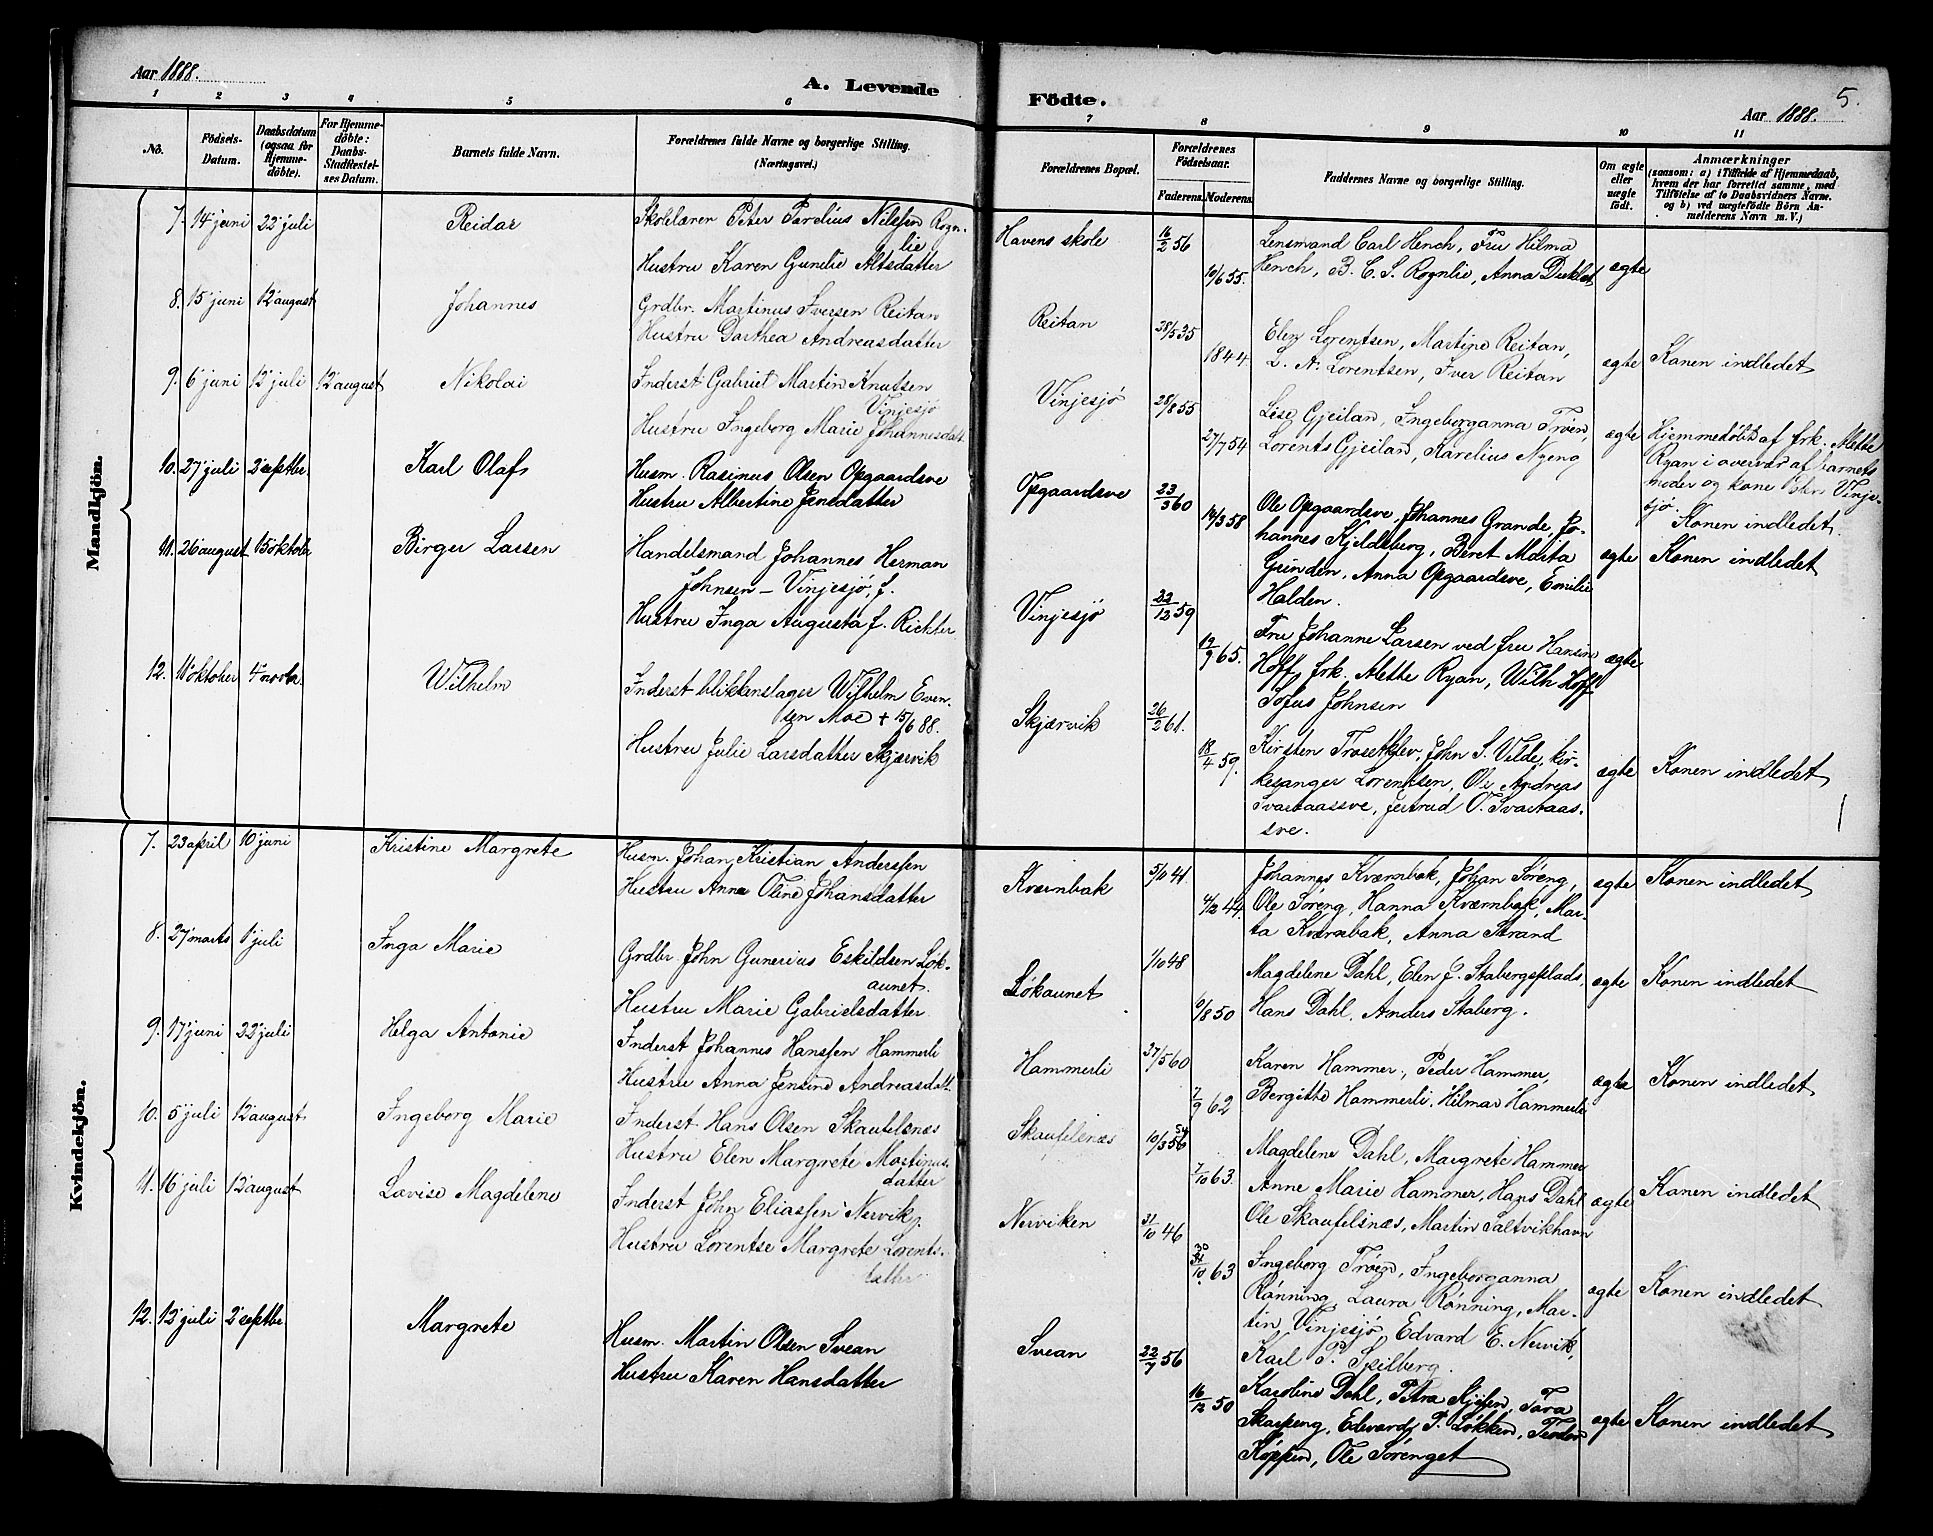 Aar 1888.
A. Levende
Födte.
Aar 1888.
5.
1 2 3 4 5 6 7 8 9 10 11
No.
Födsels-
Datum.
Daabsdatum
(ogsaa for
Hjemme-
döbte).
For Hjemme-
döbte:
Daabs-
Stadfæstel-
ses Datum.
Barnets fulde Navn.
Forældrenes fulde Navne og borgerlige Stilling.
(Næringsvei.)
Forældrenes Bopæl.
Forældrenes
Födselsaar.
Faderens. Moderens.
Faddernes Navne og borgerlige Stilling.
Om ægte
eller
uægte
födt.
Anmærkninger
(saasom: a) i Tilfælde af Hjemmedaab,
hvem der har forrettet samme, med
Tilföielse af to Daabsvidners Navne.
og b) ved uægtefödte Börn An-
melderens Navn m. V.)
Mandkjön.
7. 14 juni 22 juli
Reidar
Skolelærer Peter Parelius Nilssen Rogn-
lie
Hustru Karen Gunelie Altsdatter
Havens skole
16/2 56
10/6 55.
Lensmand Carl Hench, Fru Hilma
Hench, B. C. S. Rognlie, Anna
ægte
8. 15 juni 12 august
Johannes
Grdbr. Martinus Iversen Reitan
Hustru Dorthea Andreasdatter
Reitan
28/5 35
1844.
Elen Lorentsen, Martine Reitan,
L. A. Lorentsen, Iver Reitan
ægte
Konen indledet
9. 6 juni 12 juli 12 august
Nikolai
Inderst Gabriel Martin Knutsen
Vinjesjø
Hustru Ingeborg Marie Johannesdatt.
Vinjesjø
28/8 55
27/7 54
Lise Gjeilan, Ingeborganna Trøen,
Lorents Gjeilan, Karelius Nyeng
ægte
Hjemmedøbt af frk. Alette
Ryan i overvær af barnets
moder og kone Vinje-
sjø. Konen indledet.
10. 27 juli 2 septbr
Karl Olaf
Husm. Rasinus Olsen Opgaardsve
Hustru Albertine Jensdatter
Opgaardsve
23/3 60
14/3 58
Ole Opgaardsve, Johannes Grande, Jo-
hannes Kjeldsberg, Beret Marta
Grinden, Anna Opgaardsve, Emilie
Halden.
ægte
Konen indledet
11. 26 august 15 oktober
Birger Lassen
Handelsmand Johannes Herman
Johnsen - Vinjesjø, f.
Hustru Inga Augusta f. Richter
Vinjesjø
22/12 59
12/9 65.
Fru Johanne Larsen ved fru Hansine
Hoff, frk. Alette Ryan, Wilh Hoff
Sofus Johnsen
ægte
12. oktober 4 novbr.
Wilhelm
Inderst blikkenslager Wilhelm Even-
sen Moe + 15/6 88.
Hustru Julie Larsdatter Skjærvik
Skjærvik
26/2 61.
18/4 59.
Kirsten Trosetkjev, John S. Vilde, kir-
kesanger Lorentsen, Ole Andreas
Svartaassve, Jertrud O. Svartaas-
sve.
ægte
Konen indledet
Kvindekjön.
7. 23 april 10 juni
Kristine Margrete
Husm. Johan Kristian Anderssen
Hustru Anna Oline Johansdatter
Kværnbak
5/10 41
4/2 44.
Johannes Kværnbak, Johan Søreng,
Ole Søreng, Hanna Kværnbak, Mar-
ta Kværnbak, Anna Strand
ægte
Konen indledet
8. 27 marts 1 juli
Inga Marie
Grdbr. John Gunerius Eskildsen Løk-
aunet.
Hustru Marie Gabrielsdatter
Løkaunet
1/10 48
6/8 50
Magdelene Dahl, Elen J. Stabergsplads,
Hans Dahl, Anders Staberg.
ægte
Konen indledet
9. 17 juni 22 juli
Helga Antonie
Inderst Johannes Hanssen Hammerli
Hustru Anna Jensine Andreasdatt.
Hammerli
27/5 60
7/9 62
Karen Hammer, Peder Hammer,
Bergitte Hammerli, Hilmar Hammerli
ægte
Konen indledet
10. 5 juli 12 august
Ingeborg Marie
Inderst Hans Olsen Skaufelsnæs
Hustru Elen Margrete Martinus-
datter
Skaufelsnæs
10/3 56
7/10 63.
Magdelene Dahl, Margrete Hammer
Anne Marie Hammer, Hans Dahl
Ole Skaufelsnæs, Martin Saltvikhavn
ægte
Konen indledet
11. 16 juli 12 august
Lovise Magdelene
Inderst John Eliassen Nervik
Hustru Lorentse Margrete Lorents-
datter
Nerviken
31/10 46
30/10 63
Ingeborg Trøen, Ingeborganna
Rønning, Laura Rønning, Mar-
tin Vinjesjø, Edvard E. Nervik,
Karl P. Spilberg.
ægte
Konen indledet
12. 12 juli 2 septbr
Margrete
Husm. Martin Olsen Svean
Hustru Karen Hansdatter
Svean
22/7 56
16/12 50
Karoline Dahl, Petra Kjilen, Tora
Skarpeng, Edvard P. Løkken, Teodor
Køppen, Ole Sørenget
ægte
Konen indledet